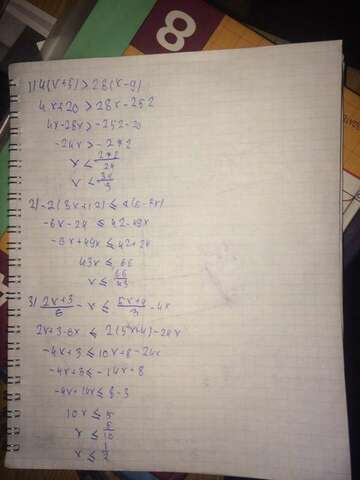 8
1) 4(x+5) > 28(x-9)
4x+20 > 28x-252
4x-28x > -252-20
-24x > -272
x < 272/24
x < 34/3
2) -2(3x+12) ≤ 7(6-7x)
-6x-24 ≤ 42-49x
-6x+49x ≤ 42+24
43x ≤ 66
x ≤ 66/43
3) 2x+3/6 - x ≤ 5x+4/3 - 4x
2x+3-6x ≤ 2(5x+4)-24x
-4x+3 ≤ 10x+8-24x
-4x+3 ≤ -14x+8
-4x+14x ≤ 8-3
10x ≤ 5
x ≤ 5/10
x ≤ 1/2